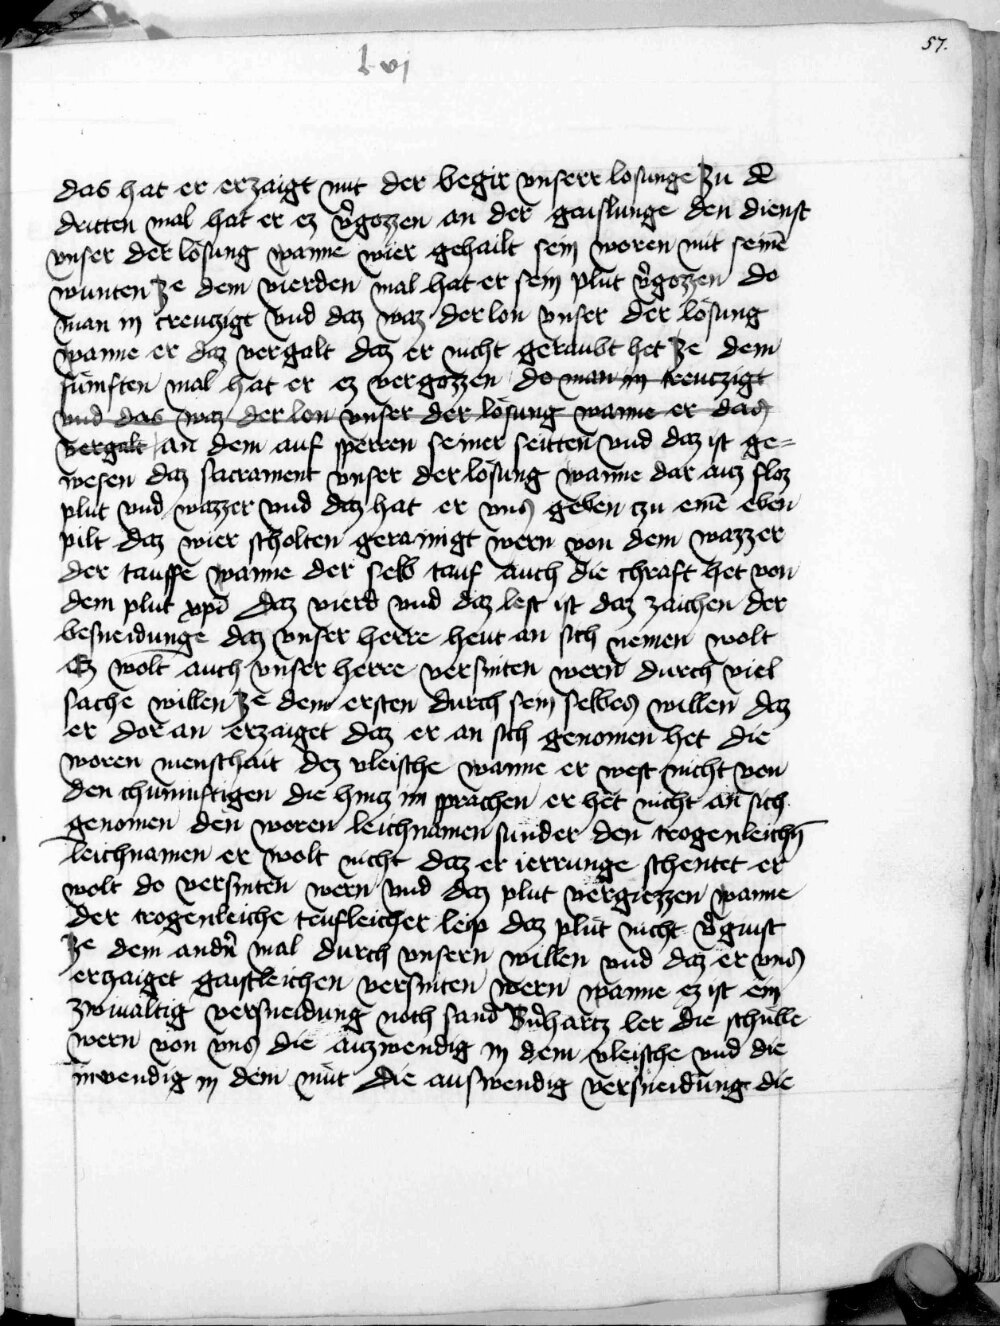 57.
lvj
das hat er erzaigt mit der begir vnserr losunge zu dē
dritten mal hat er ez v̾gozzen an der gaislunge den dienst
vnser der lösung wanne wier gehailt sein woren mit seinē
wunten ze dem vierden mal hat er sein plut v̾gozzen do
man in creutzigt vnd daz waz der lon vnser der lösung
wanne er daz vergalt daz er nicht geraubt het ze dem
fumften mal hat er ez vergozzen do man in creutzigt
vnd das waz der lon vnser der lösung wanne er das
vergalt an dem auf sperren seiner seitten vnd daz ist ge=
wesen daz sacrament vnser der lösung wanne dar auz floz
plut vnd wazzer vnd daz hat er vns geben czu einē eben
pilt daz wier scholten gerainigt wern von dem wazzer
der tauffe wanne der selb tauf auch die chraft het von
dem plut xpī daz vierd vnd daz lest ist daz zaichen der
besneidunge daz vnser herre heut an sich nemen wolt
Ez wolt auch vnser herre versniten wern durch viel
sache willen ze dem ersten durch sein selbes willen daz
er dor an erzaiget daz er an sich genomen het die
woren menschait dez vleische wanne er west nicht von
den chunnftigen die hintz im sprachen er het nicht an sich
genomen den woren leichnamen sunder den trogenleichn̄
leichnamen er wolt nicht daz er ierrunge schentet er
wolt do versniten wern vnd daz plut vergiezzen wanne
der trogenleiche teufleicher leip daz plut nicht v̾giust
ze dem andn̄ mal durch vnsern willen vnd daz er vns
erzaiget gaistleichen versniten wern wanne ez ist ein
zwiualtig versneidung noch sand B̾nhartz ler die schulle
wern von vns die auzwendig in dem vleische vnd die
inwendig in dem mut die auswendig versneidung die